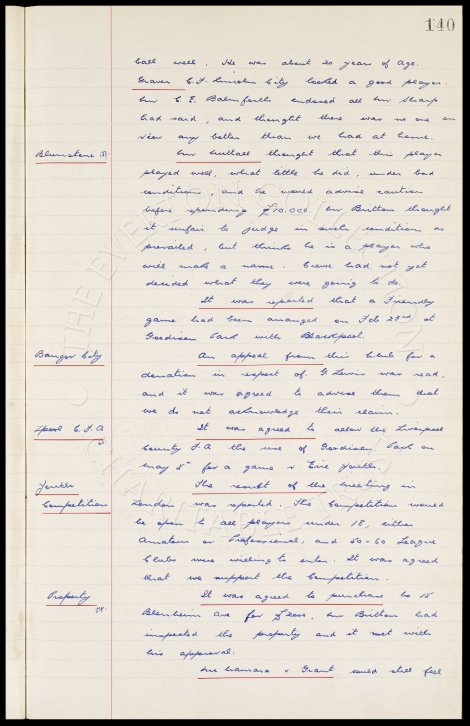 140
ball well. He was about 20 years of age.
Graver C.F. Lincoln City looked a good player.
Mr C. E. Balmforth endorsed all Mr Sharp
had said, and thought there was no one on
view any better than we had at home.
Blumstone
Mr Nuttall thought that this player
played well, what little he did, under bad
conditions, and he would advise caution
before spending £10.000. Mr Britton thought
it unfair to judge in such condition as
prevailed, but thinks he is a player who
will make a name. Crewe had not yet
decided what they were going to do.
It was reported that a Friendly
game had been arranged on Feb 23rd at
Goodison Park with Blackpool.
Bangor City
An appeal from this Club for a
donation in respect of G Lewis was read,
and it was agreed to advise them that
we do not acknowledge their claim.
Lpool C.F.A
It was agreed to allow the Liverpool
County F.A the use of Goodison Park on
May 8th for a game v Eire Youths.
Youths
Competition
The result of the meeting in
London was reported. The Competition would
be open to all players under 18, either
Amateur or Professional, and 50-60 League
Clubs were willing to enter. It was agreed
that we support the Competition.
Property
It was agreed to purchase the 15
Blenheim Ave for Mr Britton had
inspected the property and it met with
his approval.
McNamara & Grant could still feel
THE EVERTON COLLECTION
CHARITABLE TRUST